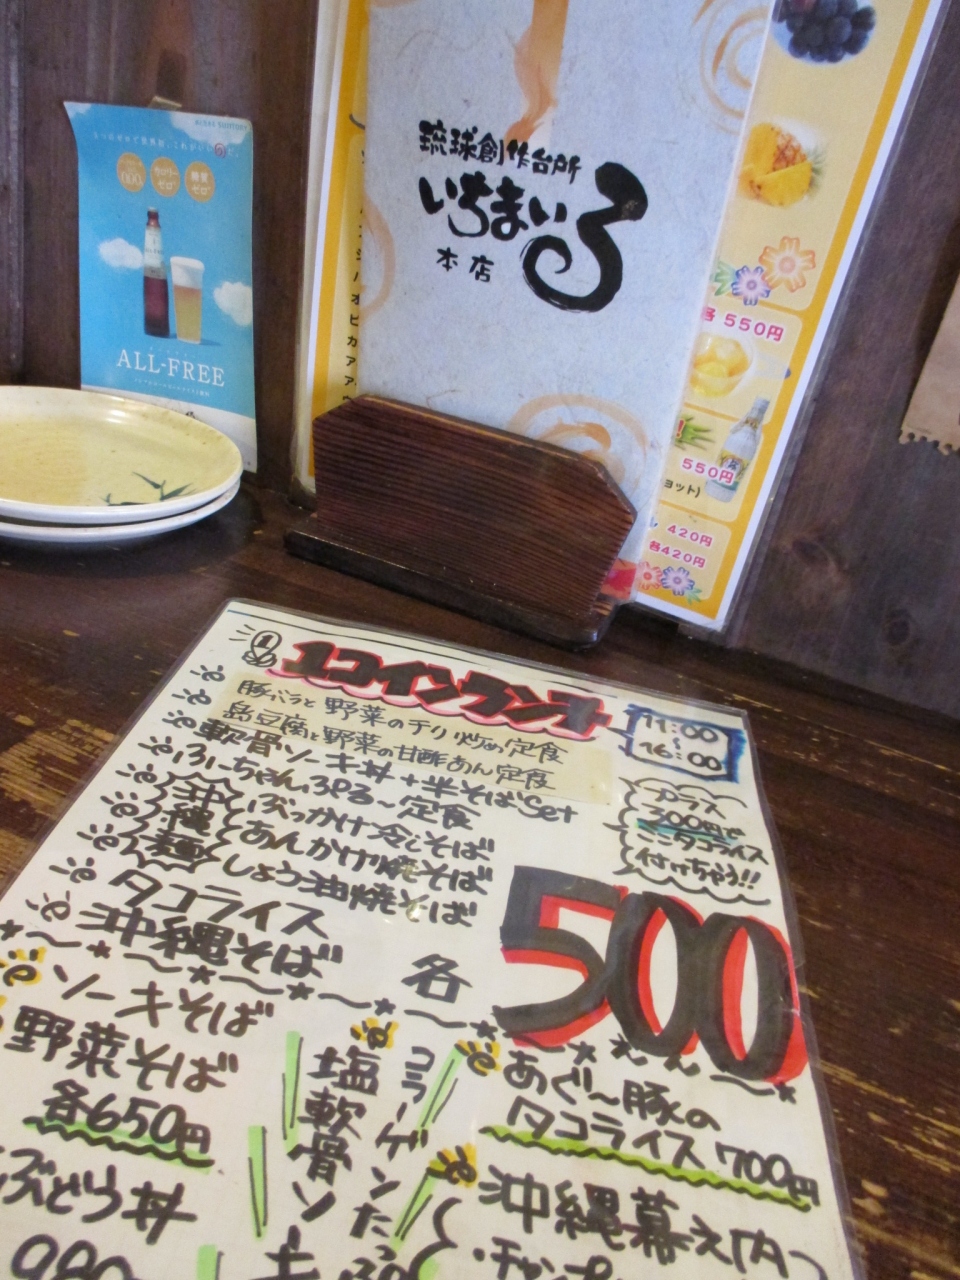 琉球創作台所
いちまいろ
本店
ALL-FREE
カロリー
ゼロ
糖質
ゼロ
各 550円
550円
ョット)
420円
各420円
1コインランチ
11:00
〜
16:00
豚バラと野菜のチリ炒め定食
島豆腐と野菜の甘酢あん定食
軟骨ソーキ丼+半そばSet
ふーちゃんぷる〜定食
沖縄麺
ぶっかけ冷しそば
あんかけ焼そば
しょう油焼そば
タコライス
沖縄そば
各
500
えん
プラス
300円で
ミニタコライス
付けちゃう!!
ソーキそば
野菜そば
各650円
ぶどう丼
980
コラーゲンたっ
塩軟骨ソーキ
あぐ〜豚の
タコライス 700円
沖縄幕之内
・チャンプ